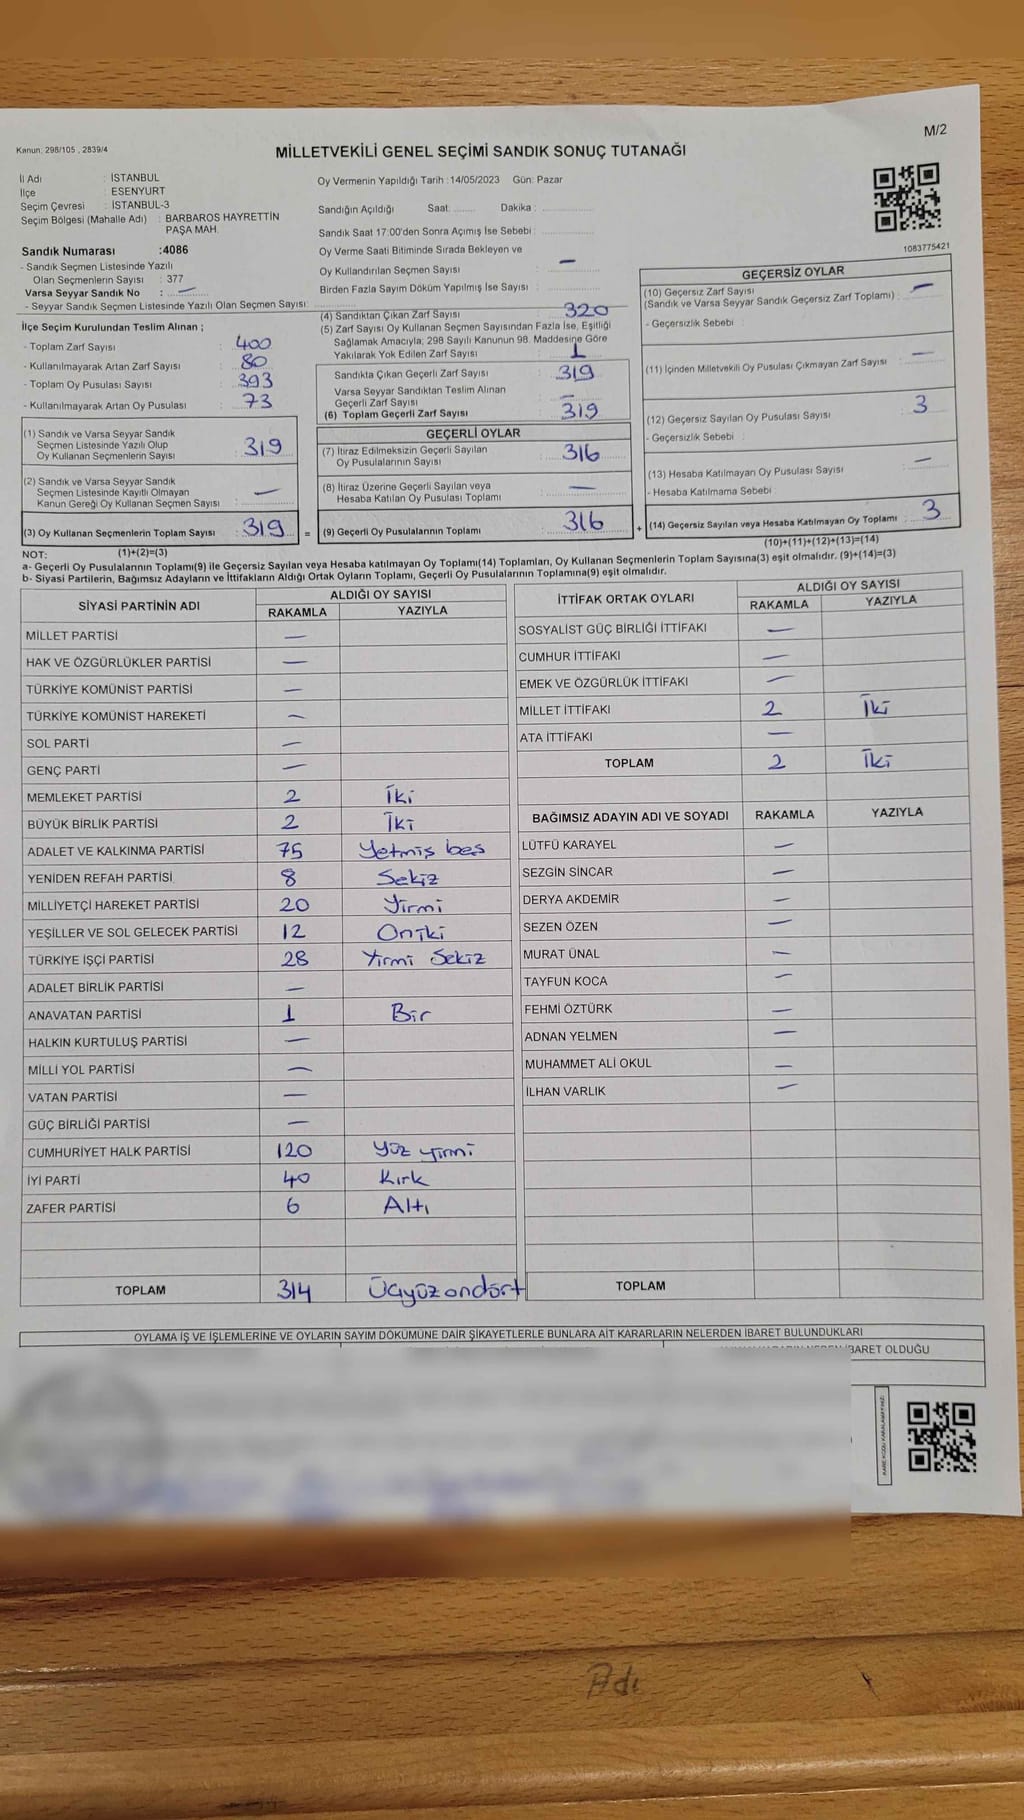 M/2
Kanun: 298/105 , 2839/4
MİLLETVEKİLİ GENEL SEÇİMİ SANDIK SONUÇ TUTANAĞI
İl Adı : İSTANBUL
İlçe : ESENYURT
Seçim Çevresi : İSTANBUL-3
Seçim Bölgesi (Mahalle Adı) : BARBAROS HAYRETTİN
PAŞA MAH.
Sandık Numarası :4086
- Sandık Seçmen Listesinde Yazılı
Olan Seçmenlerin Sayısı : 377
Varsa Seyyar Sandık No : —
- Seyyar Sandık Seçmen Listesinde Yazılı Olan Seçmen Sayısı:
İlçe Seçim Kurulundan Teslim Alınan ;
- Toplam Zarf Sayısı : 400
- Kullanılmayarak Artan Zarf Sayısı : 80
- Toplam Oy Pusulası Sayısı : 393
- Kullanılmayarak Artan Oy Pusulası : 73
(1) Sandık ve Varsa Seyyar Sandık
Seçmen Listesinde Yazılı Olup
Oy Kullanan Seçmenlerin Sayısı : 319
(2) Sandık ve Varsa Seyyar Sandık
Seçmen Listesinde Kayıtlı Olmayan
Kanun Gereği Oy Kullanan Seçmen Sayısı : —
(3) Oy Kullanan Seçmenlerin Toplam Sayısı : 319
Oy Vermenin Yapıldığı Tarih :14/05/2023 Gün: Pazar
Sandığın Açıldığı Saat: Dakika :
Sandık Saat 17:00'den Sonra Açımış İse Sebebi :
Oy Verme Saati Bitiminde Sırada Bekleyen ve
Oy Kullandırılan Seçmen Sayısı : —
Birden Fazla Sayım Döküm Yapılmış İse Sayısı :
(4) Sandıktan Çıkan Zarf Sayısı : 320
(5) Zarf Sayısı Oy Kullanan Seçmen Sayısından Fazla İse, Eşitliği
Sağlamak Amacıyla; 298 Sayılı Kanunun 98. Maddesine Göre
Yakılarak Yok Edilen Zarf Sayısı : 1
Sandıkta Çıkan Geçerli Zarf Sayısı : 319
Varsa Seyyar Sandıktan Teslim Alınan
Geçerli Zarf Sayısı : —
(6) Toplam Geçerli Zarf Sayısı : 319
GEÇERLİ OYLAR
(7) İtiraz Edilmeksizin Geçerli Sayılan
Oy Pusulalarının Sayısı : 316
(8) İtiraz Üzerine Geçerli Sayılan veya
Hesaba Katılan Oy Pusulası Toplamı : —
= (9) Geçerli Oy Pusulalarının Toplamı : 316
1083775421
GEÇERSİZ OYLAR
(10) Geçersiz Zarf Sayısı
(Sandık ve Varsa Seyyar Sandık Geçersiz Zarf Toplamı) : —
- Geçersizlik Sebebi :
(11) İçinden Milletvekili Oy Pusulası Çıkmayan Zarf Sayısı : —
(12) Geçersiz Sayılan Oy Pusulası Sayısı : 3
- Geçersizlik Sebebi :
(13) Hesaba Katılmayan Oy Pusulası Sayısı : —
- Hesaba Katılmama Sebebi :
+ (14) Geçersiz Sayılan veya Hesaba Katılmayan Oy Toplamı : 3
NOT: (1)+(2)=(3) (10)+(11)+(12)+(13)=(14)
a- Geçerli Oy Pusulalarının Toplamı(9) ile Geçersiz Sayılan veya Hesaba katılmayan Oy Toplamı(14) Toplamları, Oy Kullanan Seçmenlerin Toplam Sayısına(3) eşit olmalıdır. (9)+(14)=(3)
b- Siyasi Partilerin, Bağımsız Adayların ve İttifakların Aldığı Ortak Oyların Toplamı, Geçerli Oy Pusulalarının Toplamına(9) eşit olmalıdır.
SİYASİ PARTİNİN ADI ALDIĞI OY SAYISI
RAKAMLA YAZIYLA
MİLLET PARTİSİ —
HAK VE ÖZGÜRLÜKLER PARTİSİ —
TÜRKİYE KOMÜNİST PARTİSİ —
TÜRKİYE KOMÜNİST HAREKETİ —
SOL PARTİ —
GENÇ PARTİ —
MEMLEKET PARTİSİ 2 İki
BÜYÜK BİRLİK PARTİSİ 2 İki
ADALET VE KALKINMA PARTİSİ 75 Yetmiş beş
YENİDEN REFAH PARTİSİ 8 Sekiz
MİLLİYETÇİ HAREKET PARTİSİ 20 Yirmi
YEŞİLLER VE SOL GELECEK PARTİSİ 12 Oniki
TÜRKİYE İŞÇİ PARTİSİ 28 Yirmi Sekiz
ADALET BİRLİK PARTİSİ —
ANAVATAN PARTİSİ 1 Bir
HALKIN KURTULUŞ PARTİSİ —
MİLLİ YOL PARTİSİ —
VATAN PARTİSİ —
GÜÇ BİRLİĞİ PARTİSİ —
CUMHURİYET HALK PARTİSİ 120 Yüz yirmi
İYİ PARTİ 40 Kırk
ZAFER PARTİSİ 6 Altı
TOPLAM 314 Üçyüzondört
İTTİFAK ORTAK OYLARI ALDIĞI OY SAYISI
RAKAMLA YAZIYLA
SOSYALİST GÜÇ BİRLİĞİ İTTİFAKI —
CUMHUR İTTİFAKI —
EMEK VE ÖZGÜRLÜK İTTİFAKI —
MİLLET İTTİFAKI 2 İki
ATA İTTİFAKI —
TOPLAM 2 İki
BAĞIMSIZ ADAYIN ADI VE SOYADI RAKAMLA YAZIYLA
LÜTFÜ KARAYEL —
SEZGİN SİNCAR —
DERYA AKDEMİR —
SEZEN ÖZEN —
MURAT ÜNAL —
TAYFUN KOCA —
FEHMİ ÖZTÜRK —
ADNAN YELMEN —
MUHAMMET ALİ OKUL —
İLHAN VARLIK —
TOPLAM
OYLAMA İŞ VE İŞLEMLERİNE VE OYLARIN SAYIM DÖKÜMÜNE DAİR ŞİKAYETLERLE BUNLARA AİT KARARLARIN NELERDEN İBARET BULUNDUKLARI
İBARET OLDUĞU